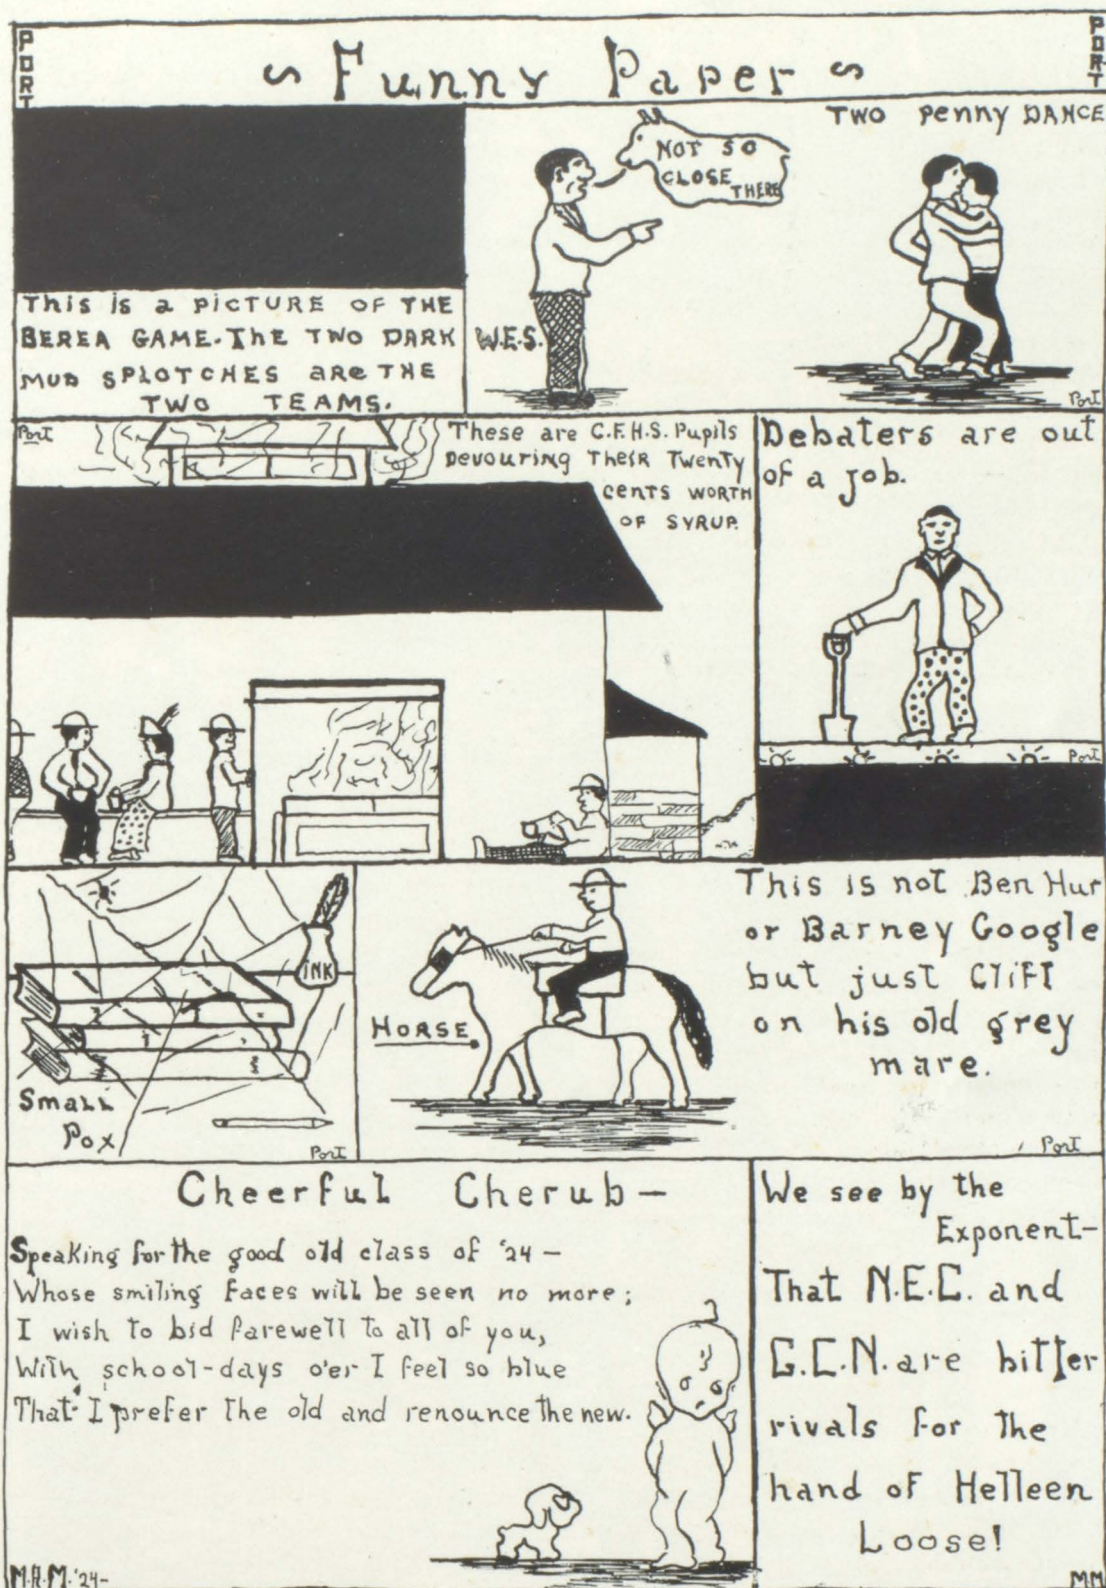 PORT
PORT
Funny Paper
This is a PICTURE OF THE
BEREA GAME. THE TWO DARK
MUD SPLOTCHES aRe THE
TWO TEAMS.
NOT SO
CLOSE
THERE
W.E.S.
TWO Penny DANCE
Port
Port
These are C.F.H.S. Pupils
Devouring Their Twenty
cents WORTH
OF SYRUP.
Debaters are out
of a job.
Port
INK
Small
Pox
Port
HORSE
This is not Ben Hur
or Barney Google
but just Cliff
on his old grey
mare.
Port
Cheerful Cherub—
Speaking for the good old class of '24—
Whose smiling faces will be seen no more;
I wish to bid farewell to all of you,
With school-days o'er I feel so blue
That I prefer the old and renounce the new.
M.H.M. '24—
We see by the
Exponent—
That N.E.C. and
G.C.N. are bitter
rivals for the
hand of Helleen
Loose!
MM